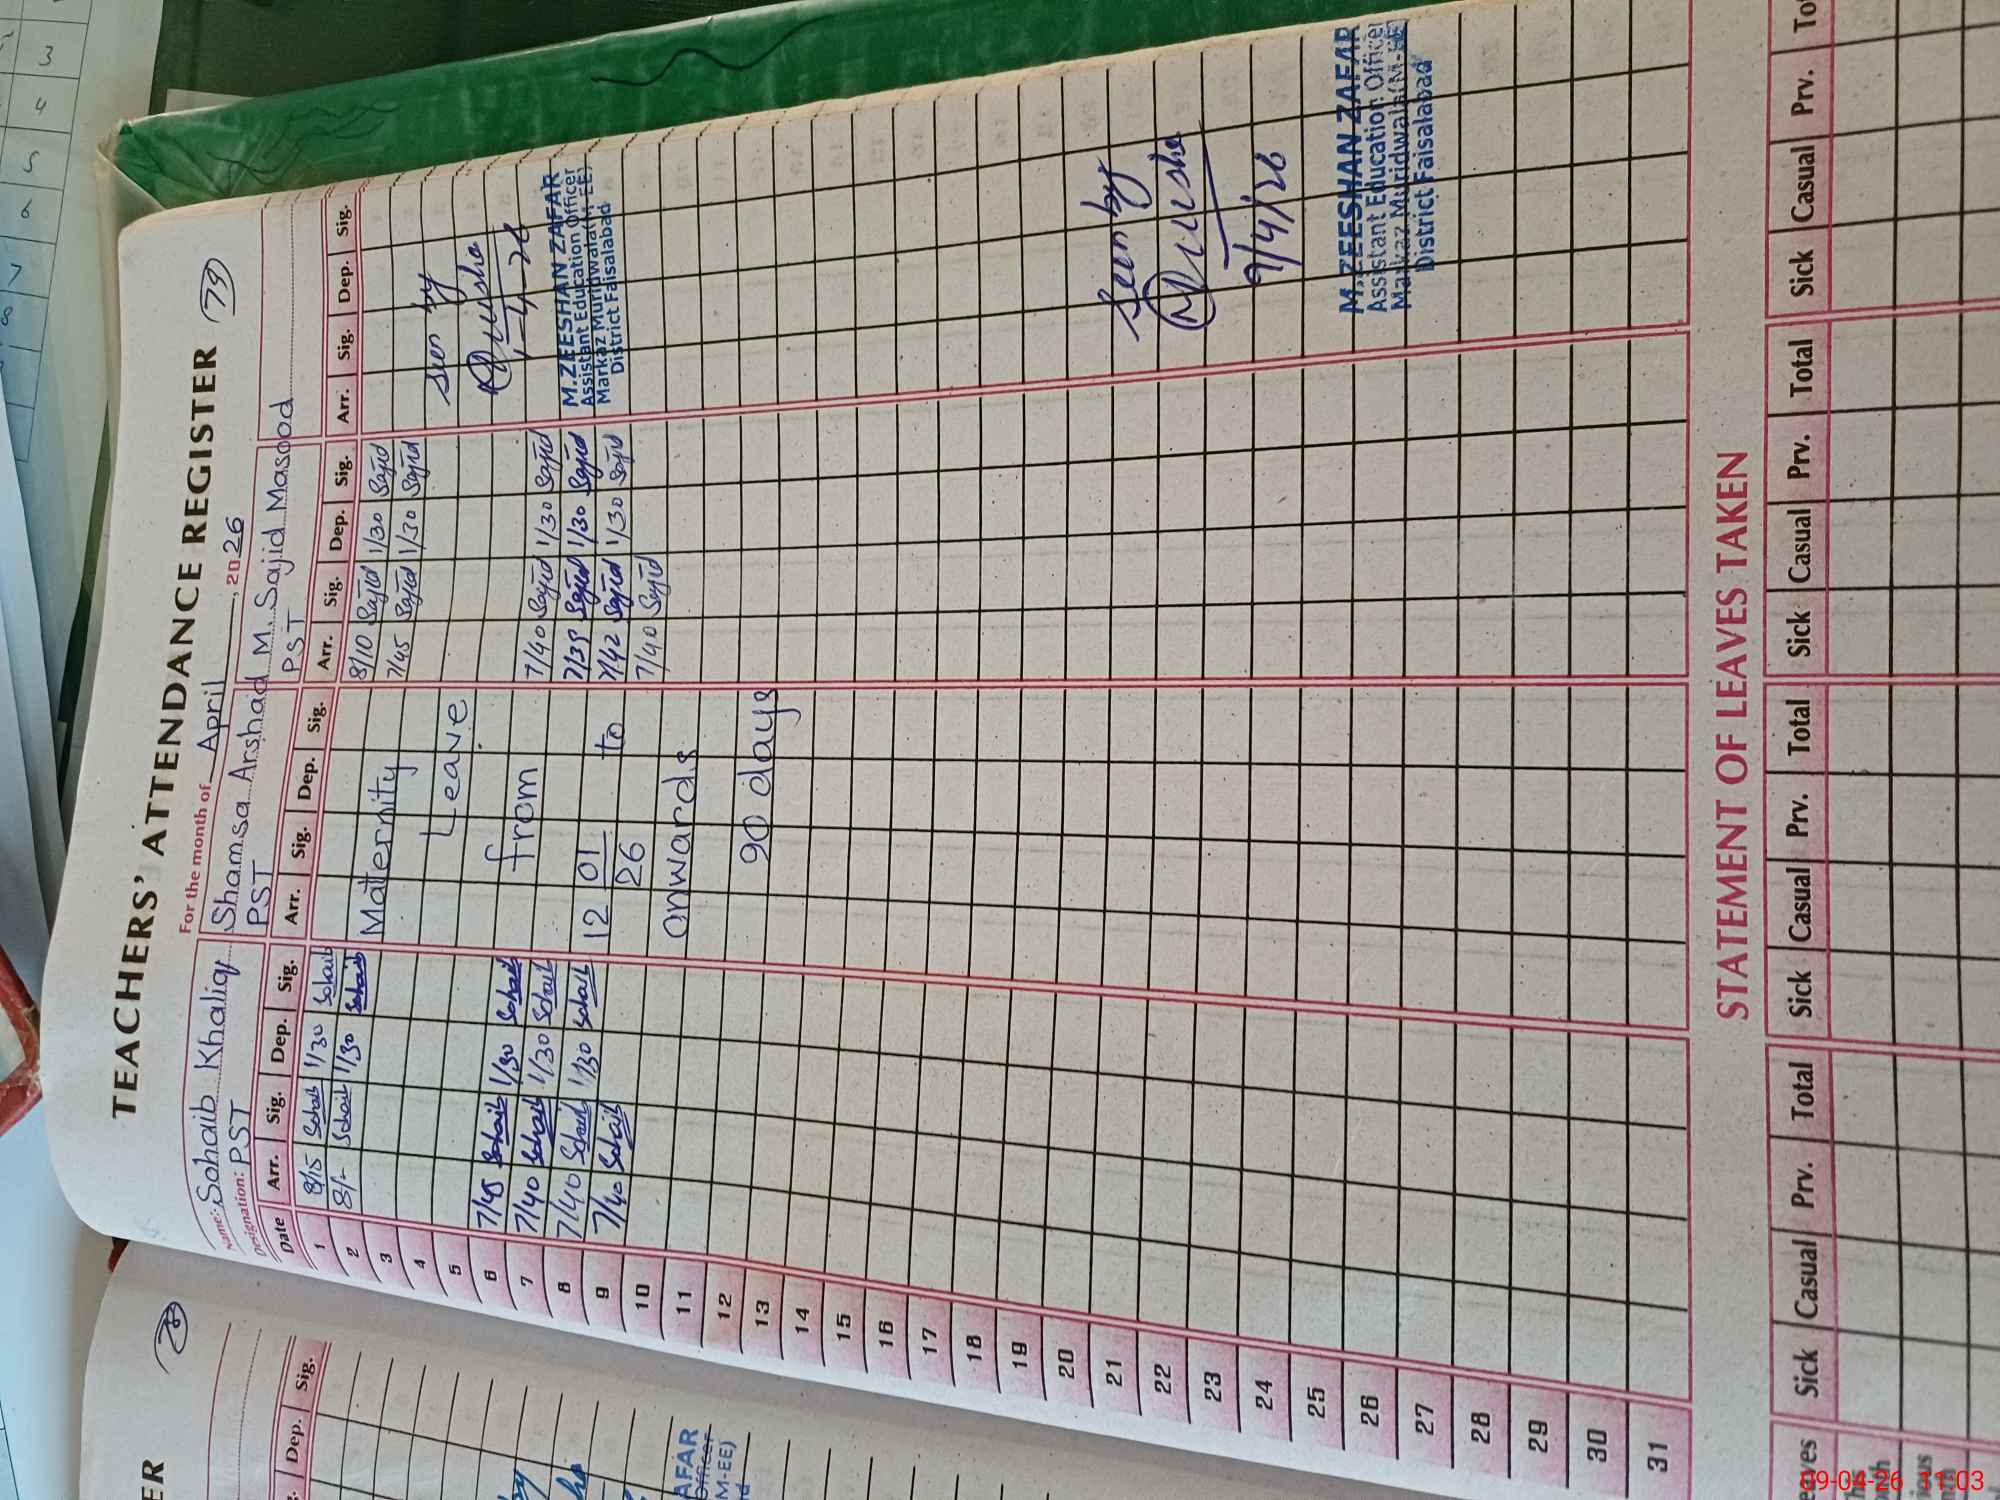 TEACHERS' ATTENDANCE REGISTER
79
For the month of April, 2026
Name: Sohaib Khaliq Shamsa Arshad M. Sajid Masood
Designation: PST PST PST
Date Arr. Sig. Dep. Sig. Arr. Sig. Dep. Sig. Arr. Sig. Dep. Sig. Arr. Sig. Dep. Sig.
1 8/15 Sohaib 1/30 Sohaib 8/10 Sajid 1/30 Sajid
2 8/- Sohaib 1/30 Sohaib Maternity 7/45 Sajid 1/30 Sajid
3 seen by
4 Leave
5
6 7/45 Sohaib 1/30 Sohaib from 7/40 Sajid 1/30 Sajid 1-4-26
7 7/40 Sohaib 1/30 Sohaib 7/39 Sajid 1/30 Sajid
8 7/40 Sohaib 1/30 Sohaib 12 01 to 7/42 Sajid 1/30 Sajid
9 7/40 Sohaib 26 7/40 Sajid
M.ZEESHAN ZAFAR
Assistant Education Officer
Markaz Muridwala(M-EE)
District Faisalabad
10 onwards
11
12 90 days
13
14
15
16
17
18
19
20
21 Seen by
22
23
24 9/4/26
25
26
M.ZEESHAN ZAFAR
Assistant Education Officer
Markaz Muridwala(M-EE)
District Faisalabad
27
28
29
30
31
STATEMENT OF LEAVES TAKEN
Sick Casual Prv. Total Sick Casual Prv. Total Sick Casual Prv. Total Sick Casual Prv.
ER
Dep. Sig.
AFAR
Officer
M-EE)
3
4
5
6
7
8
09-04-26 11:03